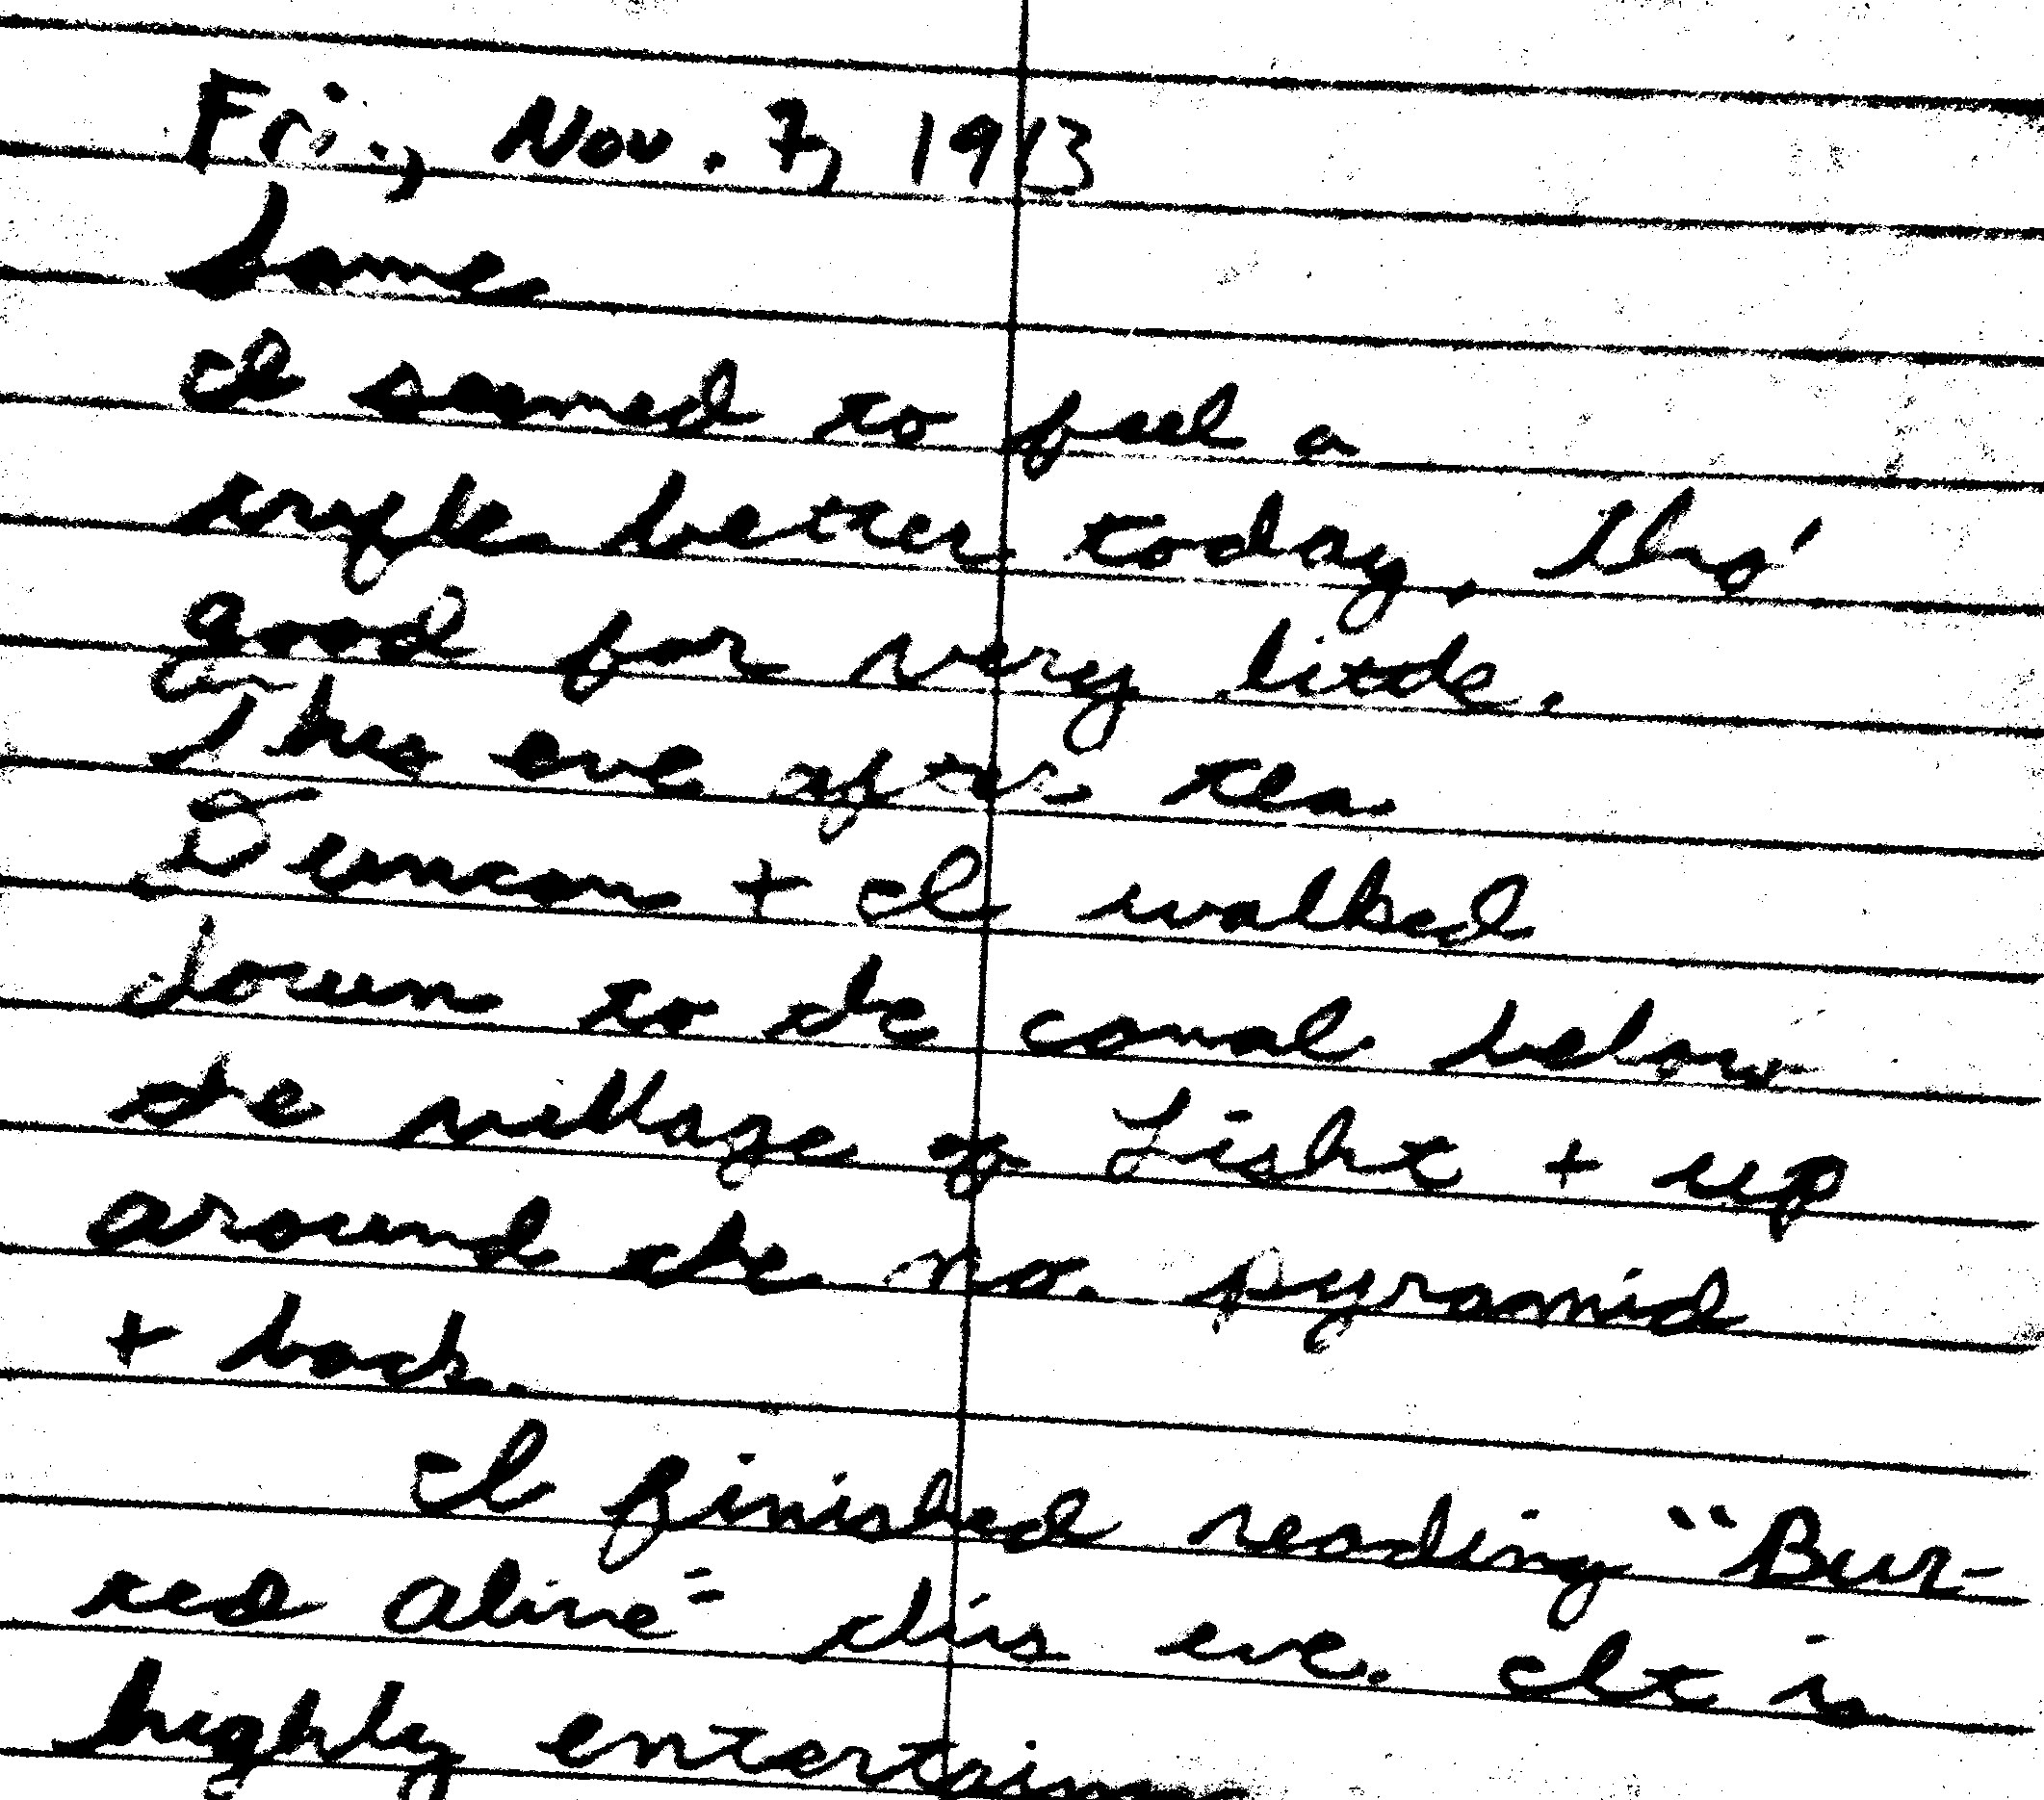 Fri., Nov. 7, 1913
Same
I seemed to feel a
trifle better today, tho'
good for very little.
This eve after tea
Duncan + I walked
down to the canal below
the village of Lisht + up
around the no. pyramid
+ back.
I finished reading "Bur-
ied Alive" this eve. It is
highly